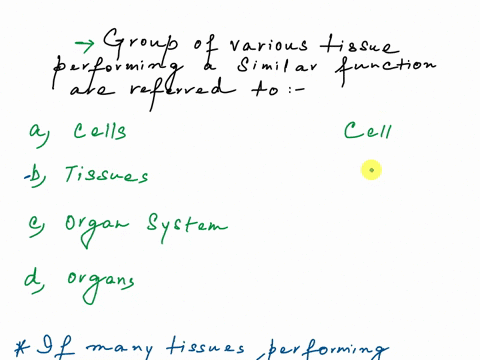 → Group of various tissue
performing a similar function
are referred to :-
a, Cells
Cell
b, Tissues
c, Organ System
d, Organs
* If many tissues performing